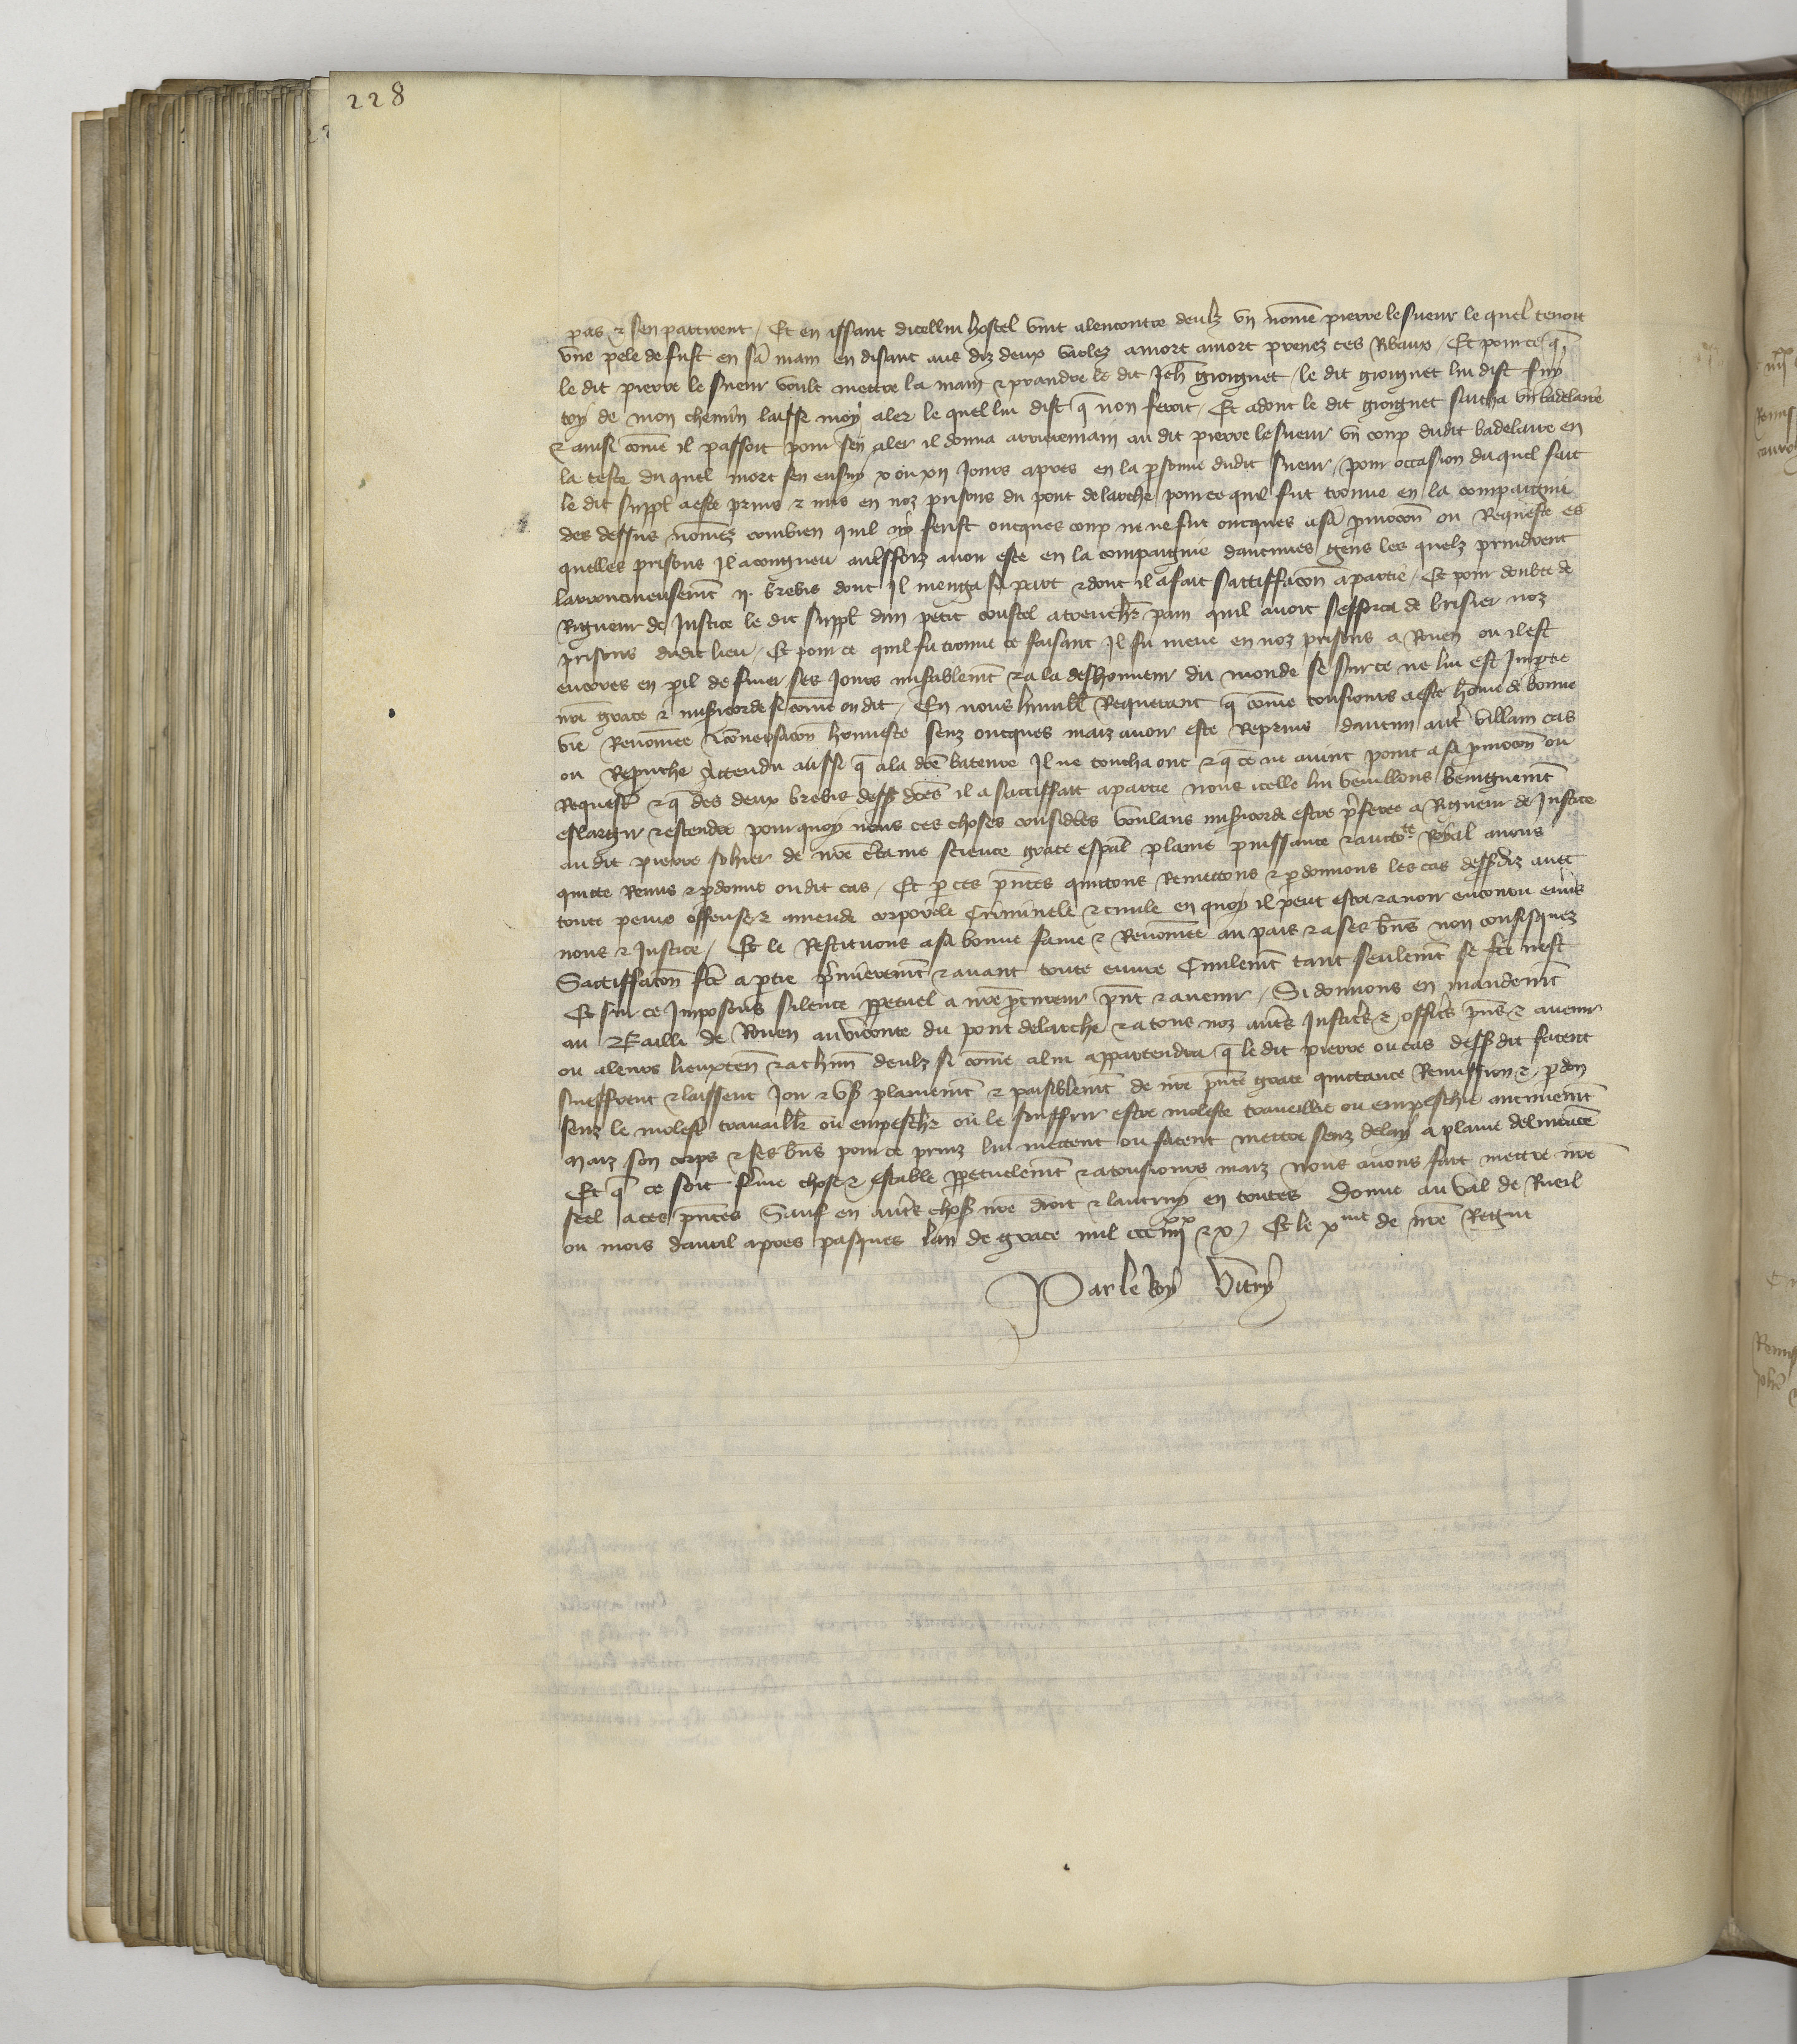 228
pas & sen partirent / Et en issant dicellui hostel vint alencontre deulz vn nomē pierre le sueur le quel tenoit
vne pele de fust en sa main en disant aus diz deux varlez amort amort prenez ces Ribaux / Et pource q̄
le dit pierre le sueur voult mettre la main & prandre le dit Jeh̄ groignet / le dit groignet lui dist fuy
toy de mon chemin laisse moy aler le quel lui dist q̄ non feroit / Et adont le dit groignet sacha vn badelaire
& ainsi cōme il passoit pour sen aler il donna arriuemain au dit pierre le sueur vn coup dudit badelaire en
la teste du quel mort sen ensuy x ou xij Jours apres en la p̄sonne dudit sueur / pour occasion du quel fait
le dit suppl̄ a este prins & mis en noz prisons du pont de larche / pource quil fut trouue en la compaignie
des dessus nōmez combien quil ny ferist oncques coup ne ne fut oncques a sa p̄mocōn ou Requeste es
quelles prisons Il a congneu aultreffoiz auoir este en la compaignie daucunes gens les quelz prindrent
larrecineusemt̄ ij. brebis dont Il menga sa part & dont il a fait sattiffacōn a partie / Et pour doubte de
Rigueur de Justice le dit suppl̄ dun petit coustel a trencher pain quil auoit sefforca de brisier noz
prisons dudit lieu / Et pour ce quil fu trouue ce faisant Il fu mene en noz prisons a Rouen ou il est
encores en p̄il de finer ses Jours mis̄ablemt̄ & a la deshonneur du monde se sur ce ne lui est Imptie
nr̄e grace & mis̄icorde si cōme on dit / En nous humbl̄ Requerant q̄ cōme tousiours a este hōme de bonne
vie Renōmee & cōneusacōn honneste senz oncques maiz auoir este Reprins daucun aut̄ villain cas
ou Reprouche Attendu aussi q̄ a la dce bateure Il ne toucha onc & q̄ ce ne auint point a sa p̄mocōn ou
Requeste & q̄ des deux brebis dess̄ dces il a sattiffait a partie nous icelle lui veuillons benignemt̄
eslargir & estendre pour quoy nous ces choses consid̄ees voulans mis̄icorde estre p̄feree a Rigueur de Justice
au dit pierre sohier de nr̄e c̄taine science grace esp̄al plaine puissance & aucto.te Royal auons
quitte Remis & p̄donne ou dit cas / Et p̄ ces p̄ntes quittons Remettons & p̄donnons les cas dess̄diz auec
toute peine offense & amende corporele Criminele & ciuile en quoy il peut estre & auoir encouru enũs
nous & Justice / Et le Restituons a sa bonne fame & Renōmee au pais & a ses bn̄s non confisquez
Sattiffacōn fc̄e a p̄tie p̄mieremt̄ & auant toute euure Ciuilemt̄ tant seulemt̄ se fc̄e nest
Et sur ce Imposons silence p̄petuel a nr̄e p̄cureur p̄nt & auenir / Si donnons en mandemt̄
au Bailli de Rouen au viconte du pont de larche & a tous noz aut̄s Justic̄s & offic̄s p̄ns & auenir
ou a leurs lieuxten̄ & a chun̄ deulz si cōme a lui appartendra q̄ le dit pierre ou cas dess̄ dit facent
sueffrent & laissent Joir & vs̄ plainemt̄ & paisiblemt̄ de nr̄e p̄nte grace quittance Remission & p̄don
senz le molest̄ trauaill̄ ou empesch̄ ou le souffrir estre moleste trauaillie ou empeschie aucunemt̄
Maiz son corps & ses bn̄s pour ce prins lui mettent ou facent mettre senz delay a plaine deliurāce
Et q̄ ce soit ferme chose & estable p̄petuelemt̄ & a tousiours maiz nous auons fait mettre nr̄e
seel a ces p̄ntes Sauf en aut̄s chos̄ nr̄e droit & lautruy en toutes Donne au val de Rueil
ou mois dauril apres pasques lan de grace mil ccc iiii xx & x / Et le x.me de nr̄e Regne
Par le Roy Vitry